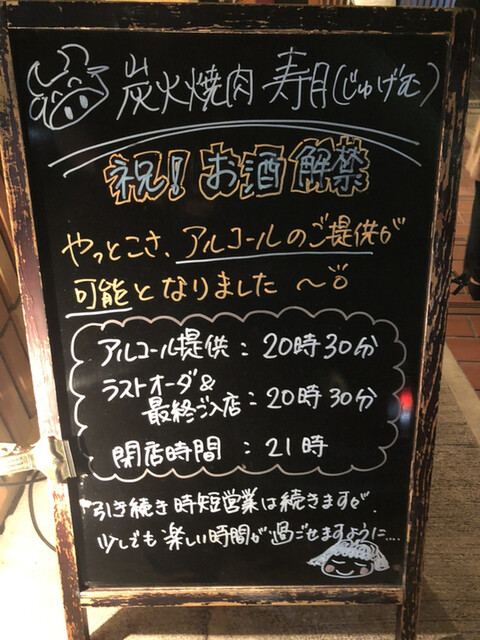 炭火焼肉 寿月(じゅげむ)
祝!お酒解禁
やっとこさ、アルコールのご提供が
可能となりました〜
アルコール提供:20時30分
ラストオーダ&
最終ご入店:20時30分
閉店時間:21時
引き続き時短営業は続きますが、
少しでも楽しい時間が過ごせますように....